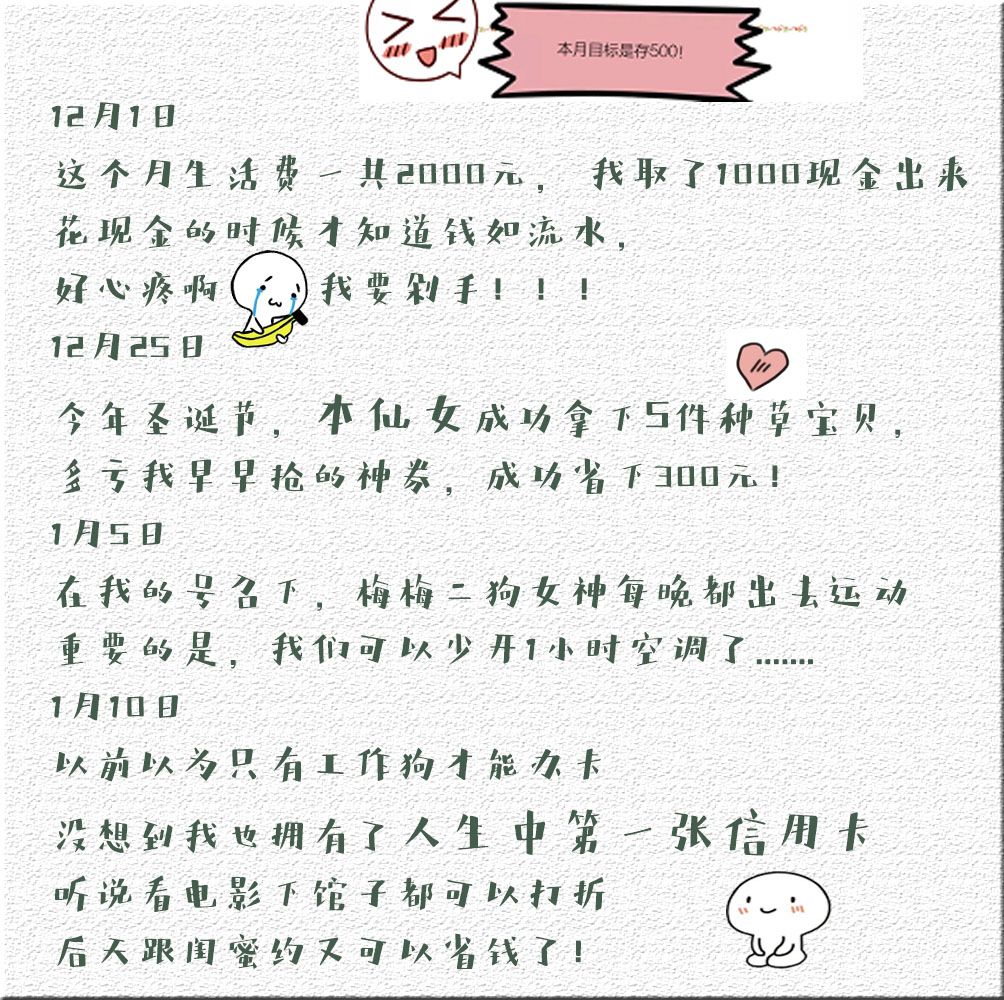 本月目标是存500!
12月1日
这个月生活费一共2000元，我取了1000现金出来
花现金的时候才知道钱如流水，
好心疼啊 我要剁手！！！
12月25日
今年圣诞节，本仙女成功拿下5件种草宝贝，
多亏我早早抢的神券，成功省下300元！
1月5日
在我的号召下，梅梅二狗女神每晚都出去运动
重要的是，我们可以少开1小时空调了.......
1月10日
以前以为只有工作狗才能办卡
没想到我也拥有了人生中第一张信用卡
听说看电影下馆子都可以打折
后天跟闺蜜约又可以省钱了！